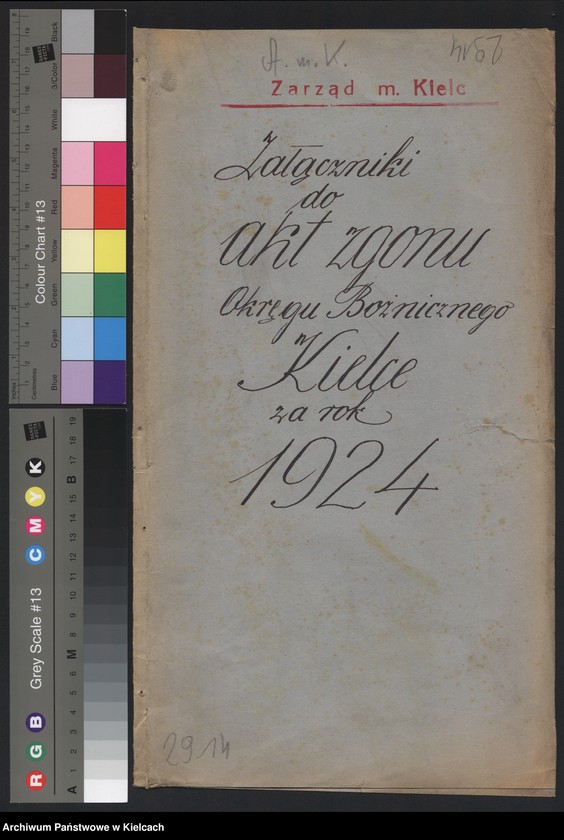 A. m. K.
2914
Zarząd m. Kielc
Załączniki
do
akt zgonu
Okręgu Bożnicznego
Kielce
za rok
1924
2914
Colour Chart #13
Black
3/Color
White
Magenta
Red
Yellow
Green
Cyan
Blue
Inches
Centimetres
Grey Scale #13
R G B
C M Y K
A 1 2 3 4 5 6 M 8 9 10 11 12 13 14 15 B 17 18 19
Archiwum Państwowe w Kielcach